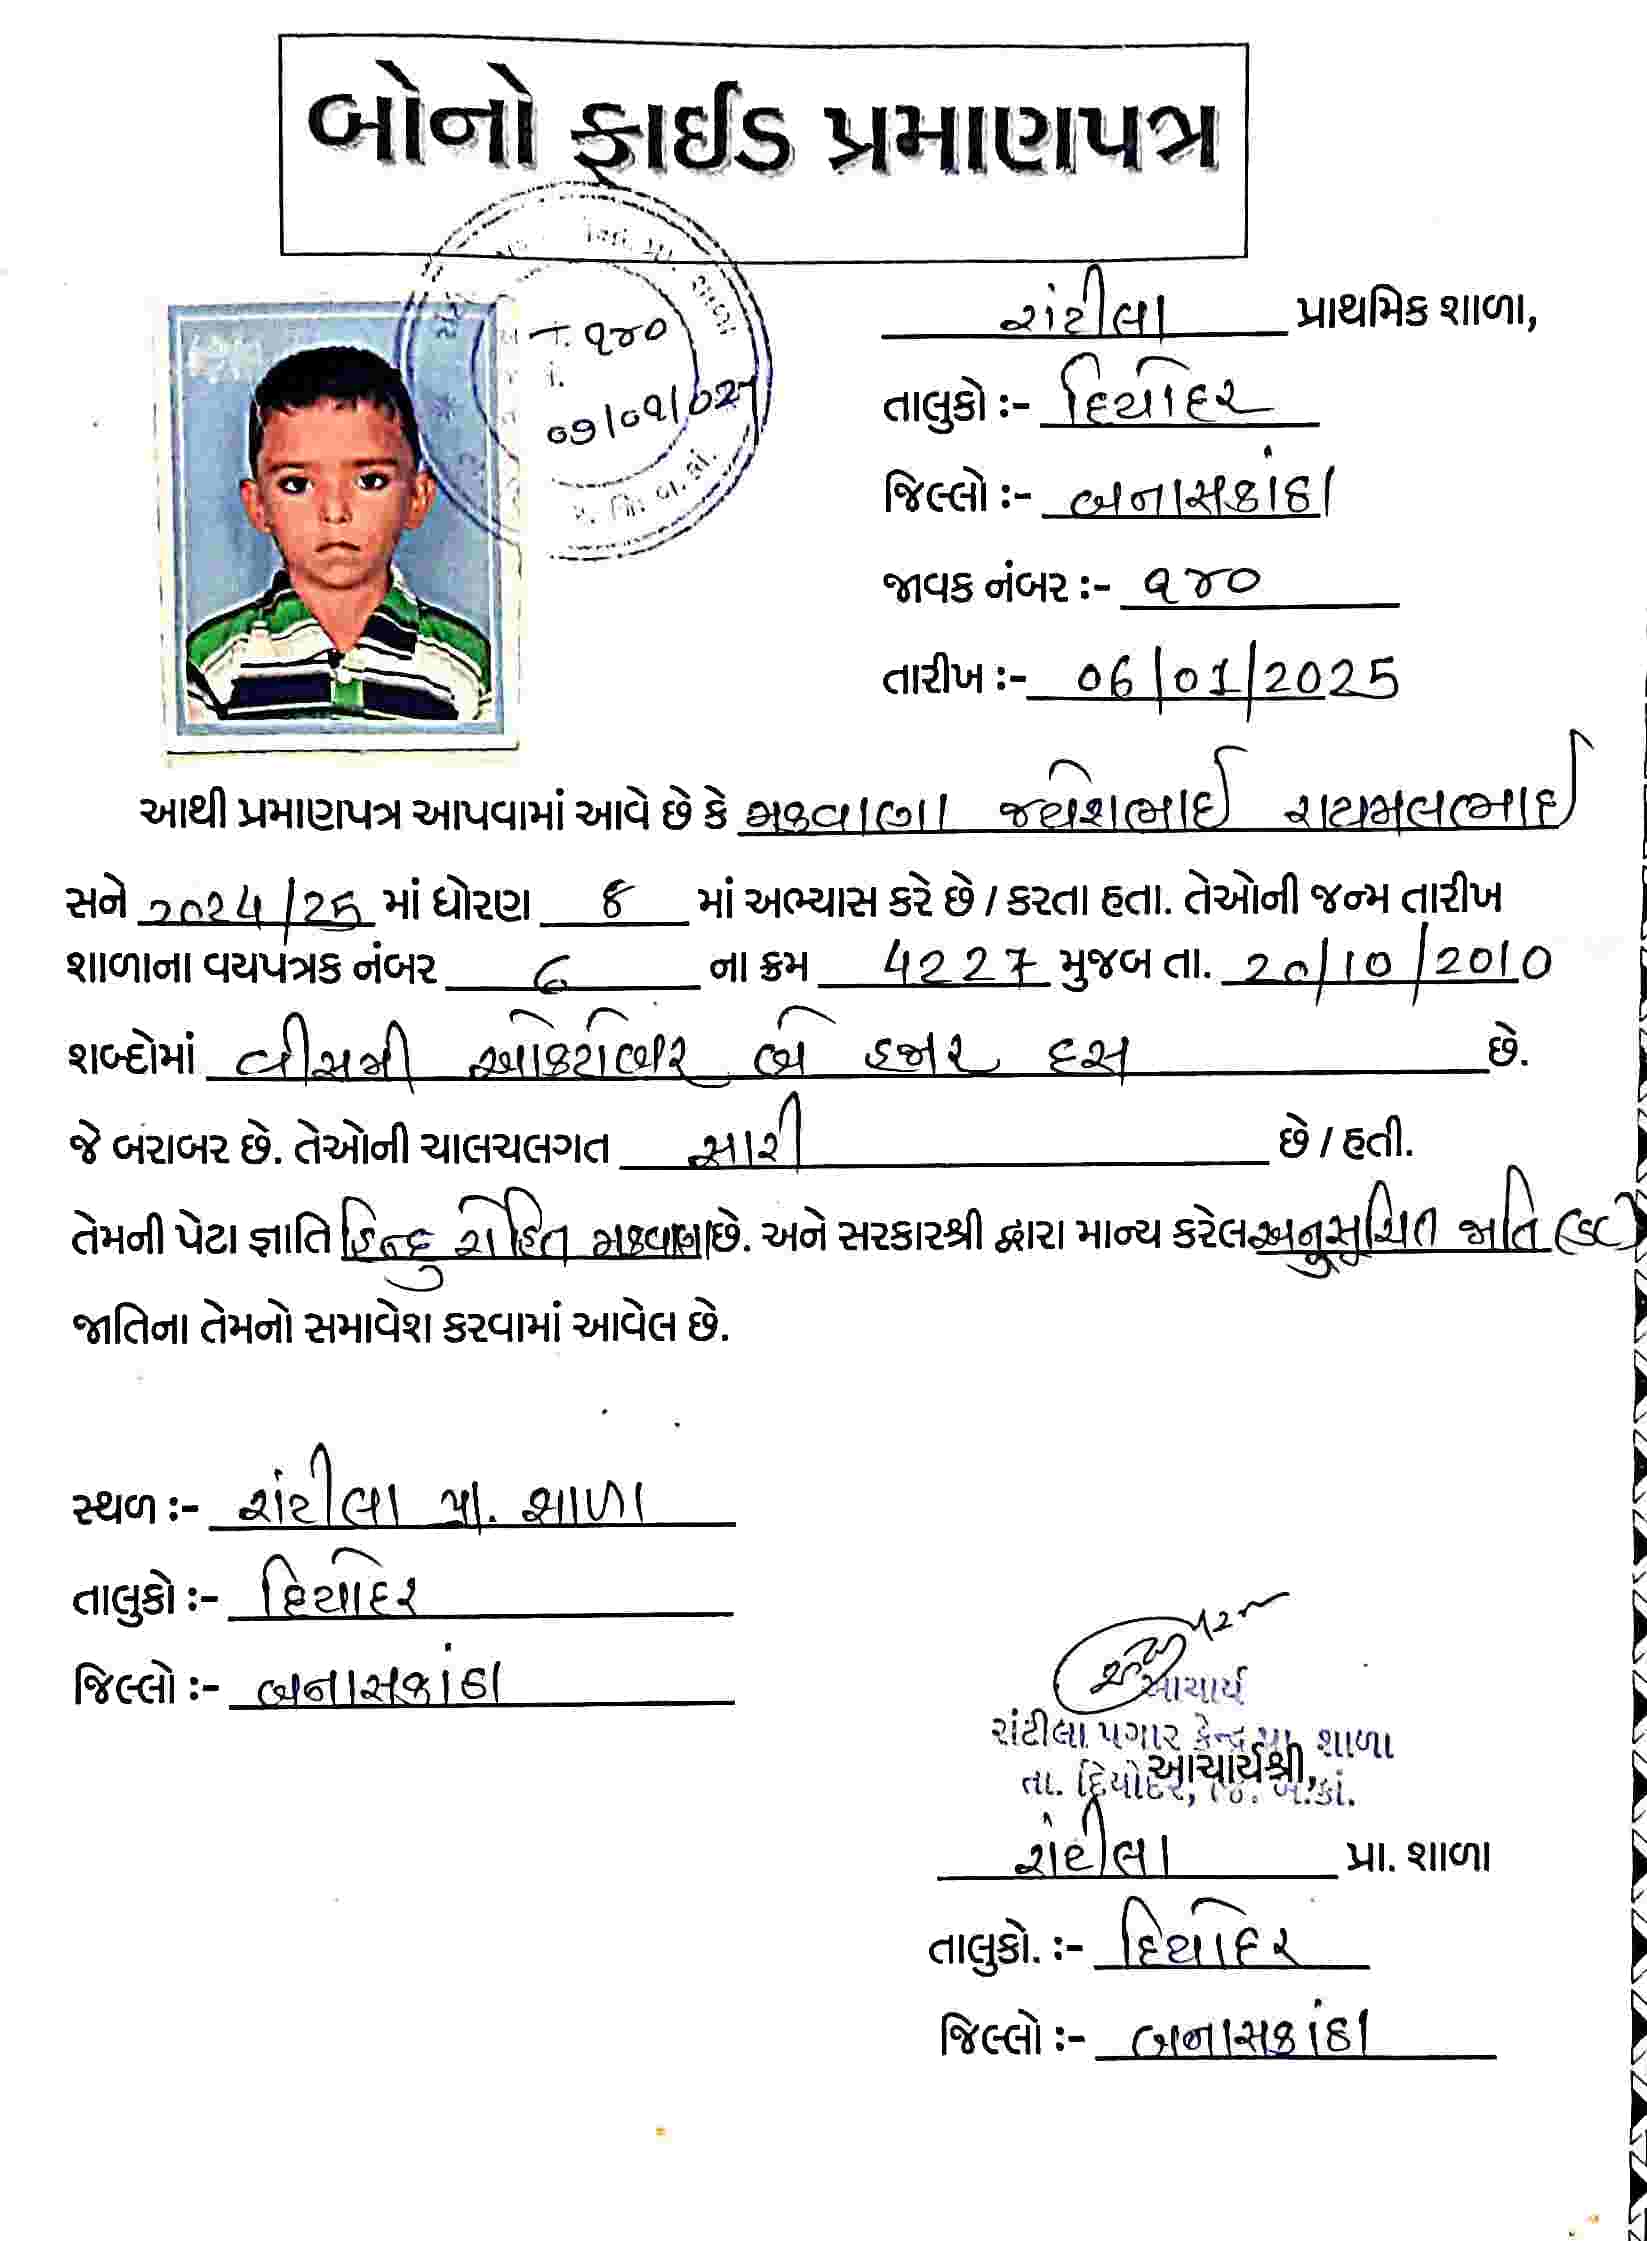 બોનો ફાઈડ પ્રમાણપત્ર
રાંટીલા પ્રાથમિક શાળા,
તાલુકો :- દિયોદર
જિલ્લો :- બનાસકાંઠા
જાવક નંબર :- ૧૪૦
તારીખ :- 06/01/2025
નં. ૧૪૦
આથી પ્રમાણપત્ર આપવામાં આવે છે કે મકવાણા જયેશભાઈ રાયમલભાઈ
સને 2024/25 માં ધોરણ 8 માં અભ્યાસ કરે છે / કરતા હતા. તેઓની જન્મ તારીખ
શાળાના વયપત્રક નંબર 6 ના ક્રમ 4227 મુજબ તા. 20/10/2010
શબ્દોમાં વીસમી ઓક્ટોબર બે હજાર દસ છે.
જે બરાબર છે. તેઓની ચાલચલગત સારી છે / હતી.
તેમની પેટા જ્ઞાતિ હિન્દુ રોહિત મકવાણા છે. અને સરકારશ્રી દ્વારા માન્ય કરેલ અનુસૂચિત જાતિ (SC)
જાતિના તેમનો સમાવેશ કરવામાં આવેલ છે.
સ્થળ :- રાંટીલા પ્રા. શાળા
તાલુકો :- દિયોદર
જિલ્લો :- બનાસકાંઠા
આચાર્ય
રાંટીલા પગાર કેન્દ્ર પ્રા. શાળા
આચાર્યશ્રી,
તા. દિયોદર, જિ. બ.કાં.
રાંટીલા પ્રા. શાળા
તાલુકો. :- દિયોદર
જિલ્લો :- બનાસકાંઠા